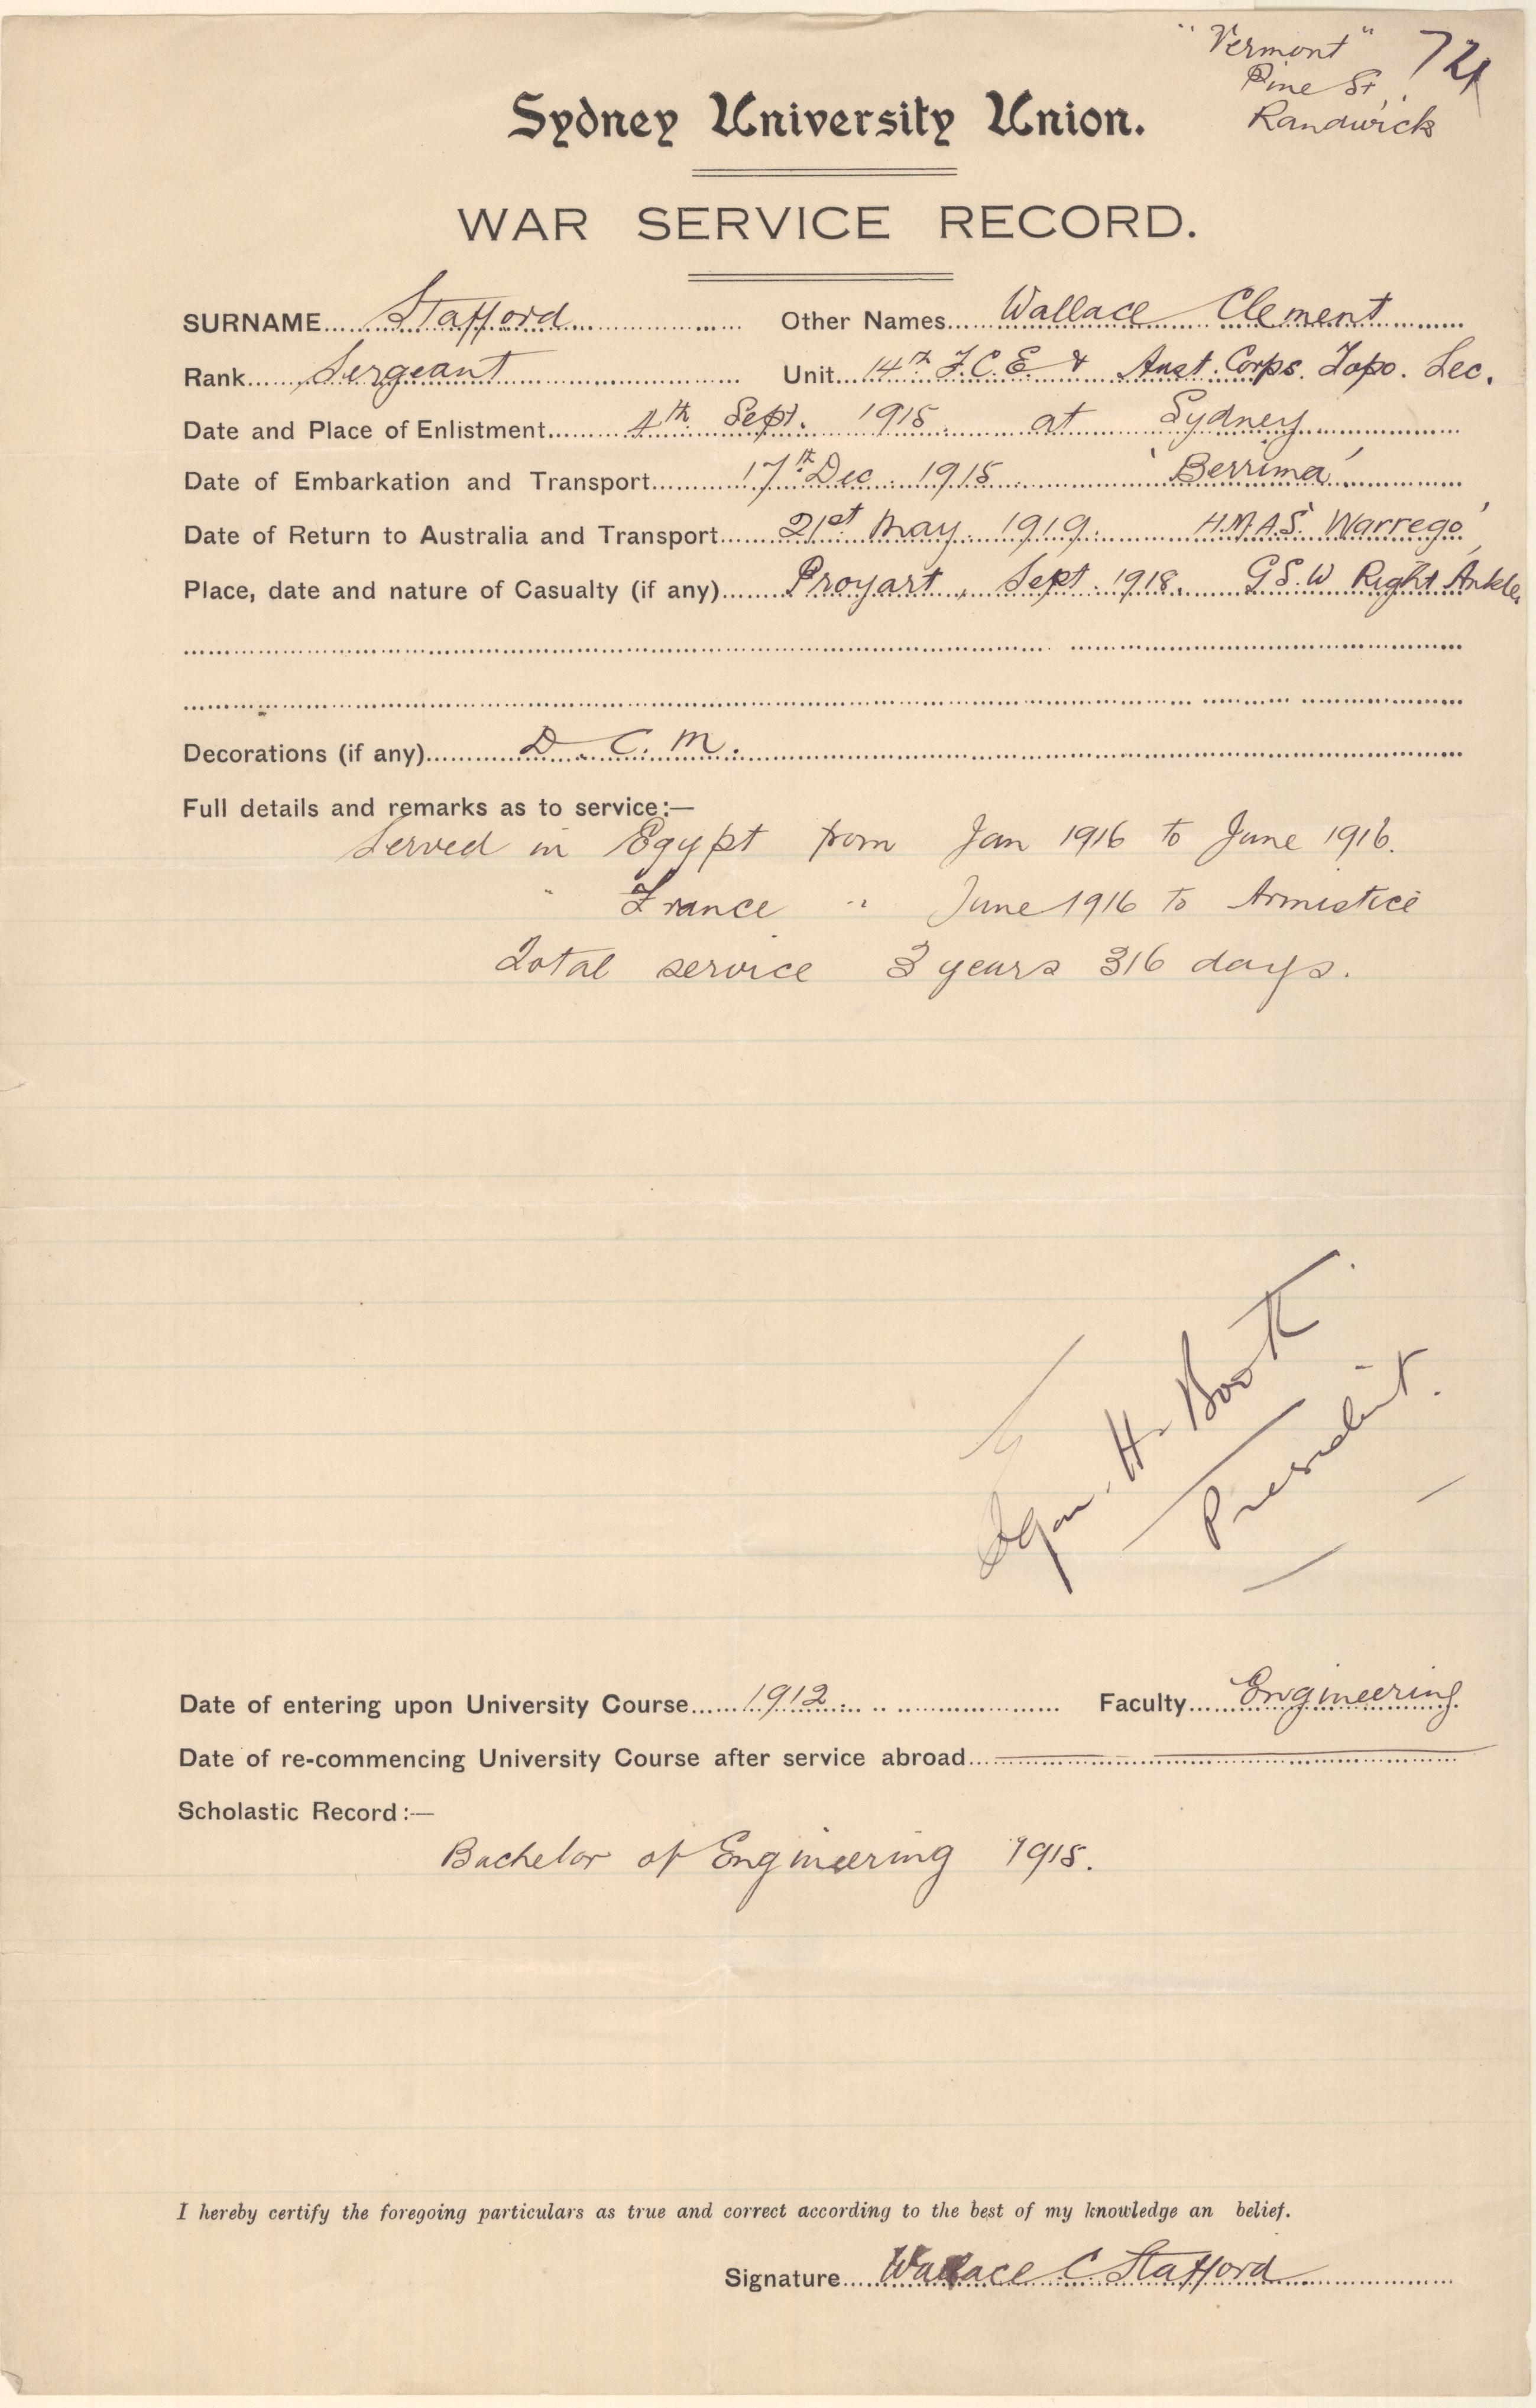 "Vermont" 721
Pine St.
Randwick
Sydney University Union.
WAR SERVICE RECORD.
SURNAME Stafford Other Names Wallace Clement
Rank Sergeant Unit 14th F.C.E & Aust. Corps. Topo. Sec.
Date and Place of Enlistment 4th Sept. 1915 at Sydney
Date of Embarkation and Transport 17th Dec 1915 'Berrima'
Date of Return to Australia and Transport 21st May 1919 H.M.A.S. 'Warrego'
Place, date and nature of Casualty (if any) Proyart, Sept. 1918. G.S.W Right Ankle.
Decorations (if any) D. C. M.
Full details and remarks as to service:—
Served in Egypt from Jan 1916 to June 1916.
" France " June 1916 to Armistice
Total service 3 years 316 days.
H. Boot
President.
Date of entering upon University Course 1912. Faculty Engineering
Date of re-commencing University Course after service abroad
Scholastic Record:—
Bachelor of Engineering 1915.
I hereby certify the foregoing particulars as true and correct according to the best of my knowledge an belief.
Signature Wallace C Stafford